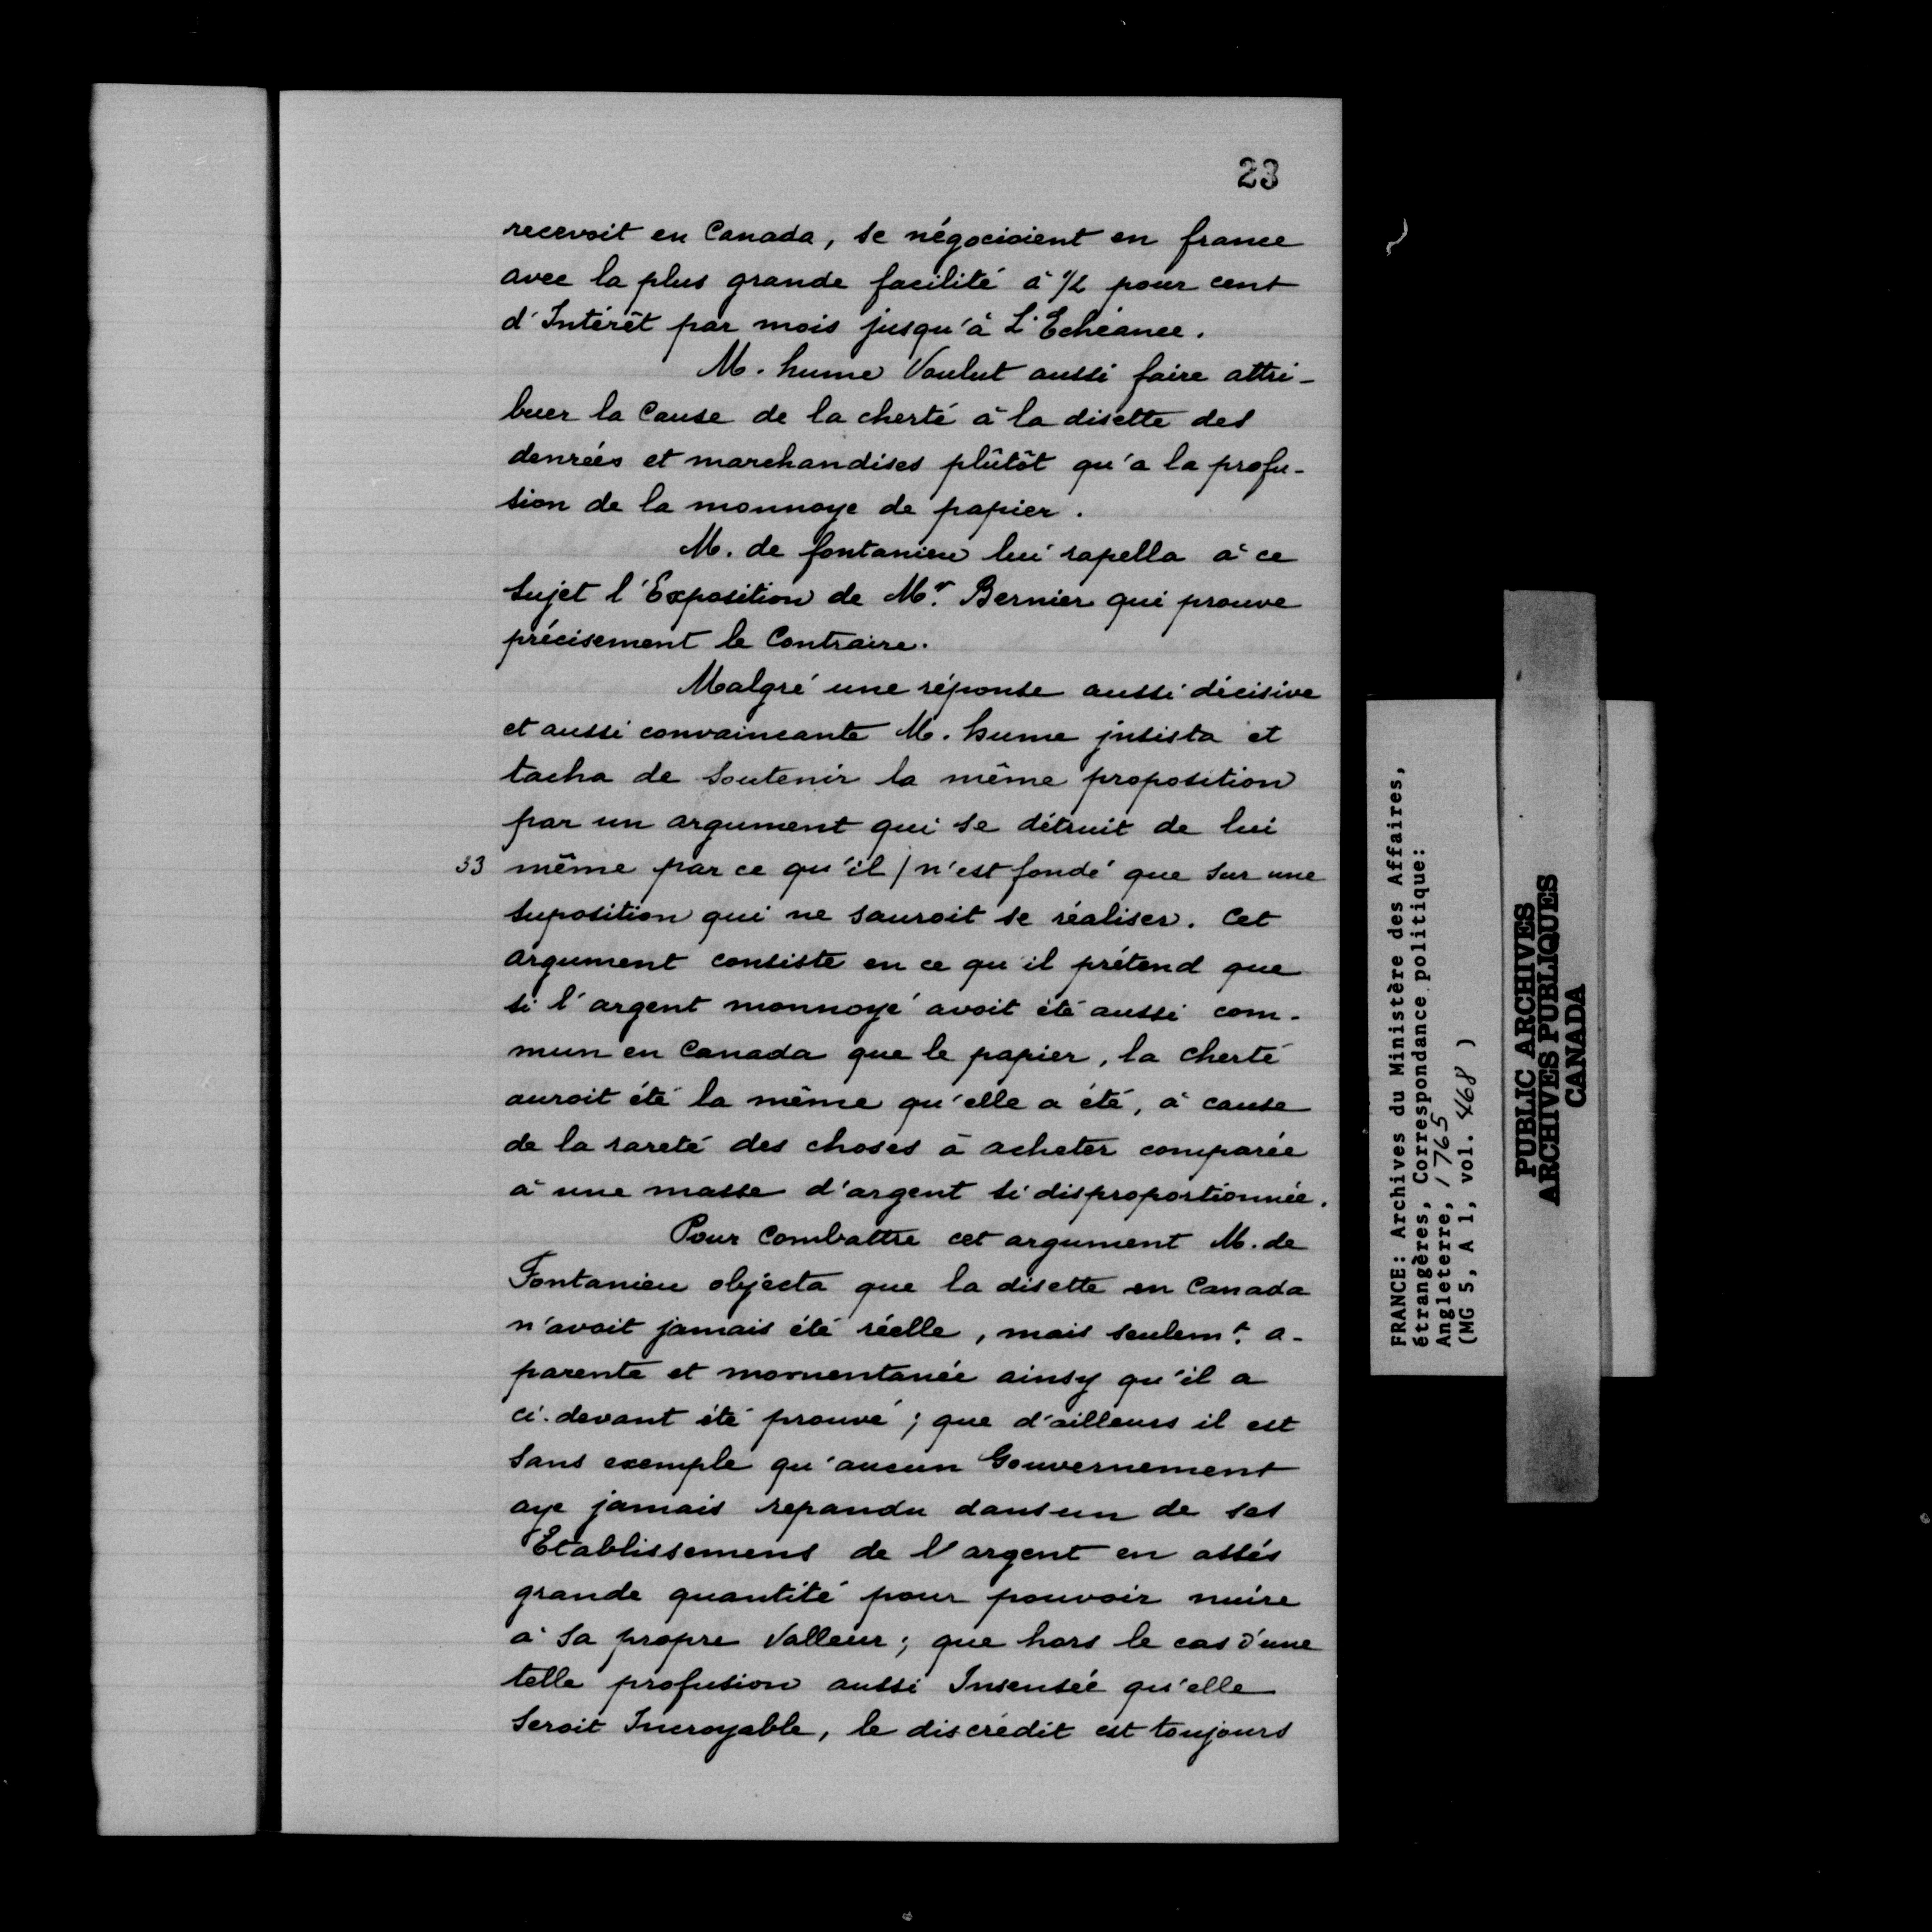 23
recevoit en Canada, se négocioient en france
avec la plus grande facilité à 1/2 pour cent
d'Intérêt par mois jusqu'à L'Echéance.
M. hume Voulut aussi faire attri-
buer la Cause de la cherté à la disette des
denrées et marchandises plûtôt qu'a la profu-
sion de la monnoye de papier.
M. de fontanieu lui rapella à ce
Sujet l'Exposition de Mr. Bernier qui prouve
précisement le Contraire.
Malgré une réponse aussi décisive
et aussi convaincante M. hume insista et
tacha de Soutenir la même proposition
par un argument qui se détruit de lui
33 même par ce qu'il / n'est fondé que Sur une
Suposition qui ne sauroit se réaliser. Cet
argument consiste en ce qu'il prétend que
si l'argent monnoyé avoit été aussi com-
mun en Canada que le papier, la cherté
auroit été la même qu'elle a été, à cause
de la rareté des choses à acheter comparée
à une masse d'argent si disproportionnée.
Pour Combattre cet argument M. de
Fontanieu objecta que la disette en Canada
n'avoit jamais été réelle, mais seulemt. a-
parente et momentanée ainsy qu'il a
ci-devant été prouvé; que d'ailleurs il est
Sans exemple qu'aucun Gouvernement
aye jamais repandu dans un de ses
Etablissemens de l'argent en assés
grande quantité pour pouvoir nuire
à Sa propre Valleur; que hors le cas d'une
telle profusion aussi Insensée qu'elle
Seroit Incroyable, le discrédit est toujours
FRANCE: Archives du Ministère des Affaires,
étrangères, Correspondance politique:
Angleterre, 1765
(MG 5, A 1, vol. 468 )
PUBLIC ARCHIVES
ARCHIVES PUBLIQUES
CANADA